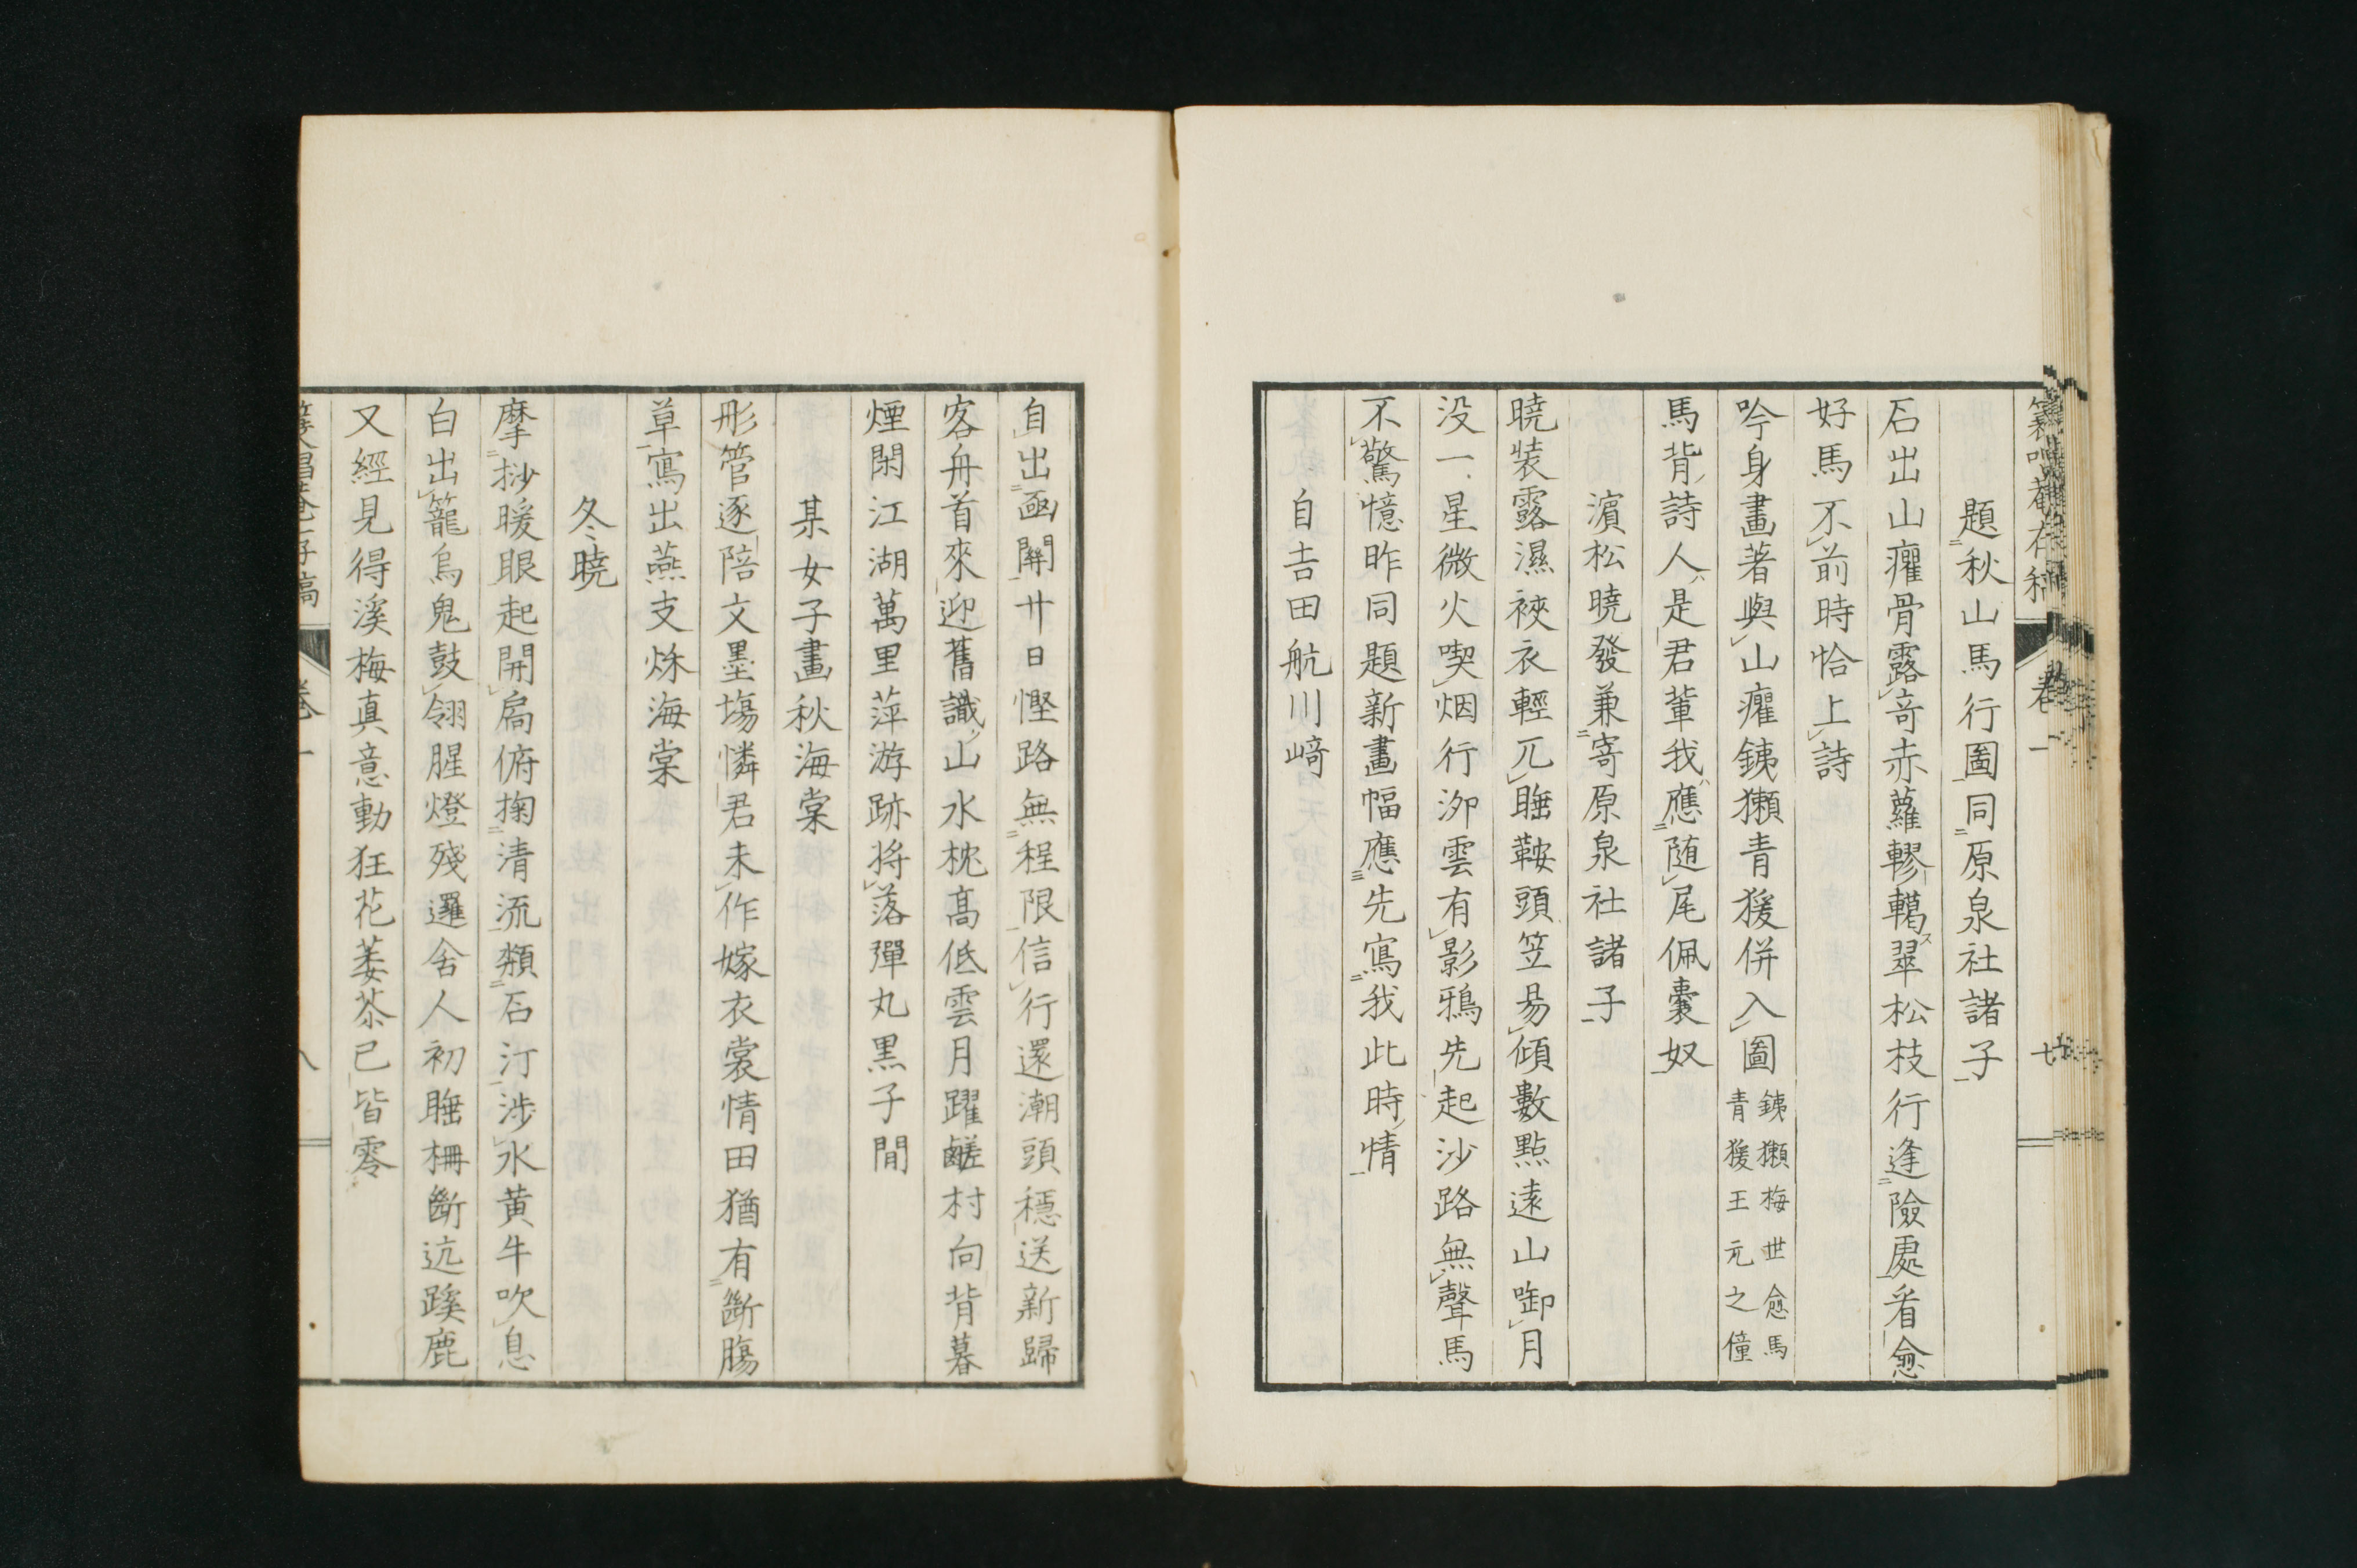 題秋山馬行圖同原泉社諸子
石出山癯骨露奇赤蘿轇轕翠松枝行逢險處看愈
好馬不前時恰上詩
吟身畫著與山癯銕獺青猨併入圖銕獺梅世愈馬
青猨王元之僮
馬背詩人是君輩我應随尾佩囊奴
濵松曉發兼寄原泉社諸子
曉装露濕裌衣輕兀睡鞍頭笠易傾數點遠山啣月
没一星微火喫烟行泖雲有影鴉先起沙路無聲馬
不驚憶昨同題新畫幅應先寫我此時情
自吉田航川﨑
自出函關廿日慳路無程限信行還潮頭穩送新歸
客舟首來迎舊識山水枕髙低雲月躍鹺村向背暮
煙閑江湖萬里萍游跡将落彈丸黒子間
某女子畫秋海棠
形管逐陪文墨塲憐君未作嫁衣裳情田猶有斷膓
草寫出燕支烁海棠
冬曉
摩挱暖眼起開扃俯掬清流頮石汀渉水黄牛吹息
白出籠烏鬼鼓翎腥燈殘邏舎人初睡柵斷远蹊鹿
又經見得溪梅真意動狂花萎苶已皆零
卷一
七
卷一
八